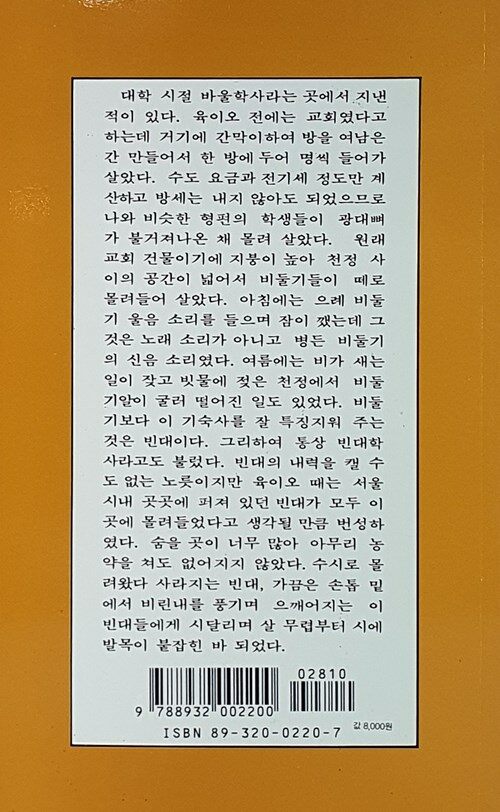 대학 시절 바울학사라는 곳에서 지낸
적이 있다. 육이오 전에는 교회였다고
하는데 거기에 간막이하여 방을 여남은
간 만들어서 한 방에 두어 명씩 들어가
살았다. 수도 요금과 전기세 정도만 계
산하고 방세는 내지 않아도 되었으므로
나와 비슷한 형편의 학생들이 광대뼈
가 불거져나온 채 몰려 살았다. 원래
교회 건물이기에 지붕이 높아 천정 사
이의 공간이 넓어서 비둘기들이 떼로
몰려들어 살았다. 아침에는 으례 비둘
기 울음 소리를 들으며 잠이 깼는데 그
것은 노래 소리가 아니고 병든 비둘기
의 신음 소리였다. 여름에는 비가 새는
일이 잦고 빗물에 젖은 천정에서 비둘
기알이 굴러 떨어진 일도 있었다. 비둘
기보다 이 기숙사를 잘 특징지워 주는
것은 빈대이다. 그리하여 통상 빈대학
사라고도 불렀다. 빈대의 내력을 캘 수
도 없는 노릇이지만 육이오 때는 서울
시내 곳곳에 퍼져 있던 빈대가 모두 이
곳에 몰려들었다고 생각될 만큼 번성하
였다. 숨을 곳이 너무 많아 아무리 농
약을 쳐도 없어지지 않았다. 수시로 몰
려왔다 사라지는 빈대, 가끔은 손톱 밑
에서 비린내를 풍기며 으깨어지는 이
빈대들에게 시달리며 살 무렵부터 시에
발목이 붙잡힌 바 되었다.
02810
9 788932 002200
값 8,000원
ISBN 89-320-0220-7